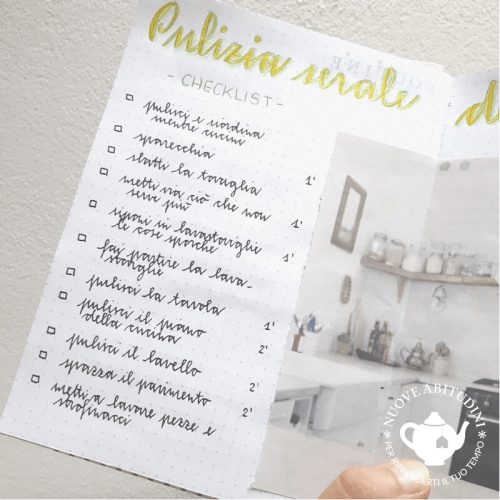 Pulizia serale
- CHECKLIST -
pulisci e riordina
mentre cucini
sparecchia
sbatti la tovaglia 1'
metti via ciò che non
serve più 1'
riponi in lavastoviglie
le cose sporche 1'
fai partire la lava-
stoviglie
pulisci la tavola 1'
pulisci il piano
della cucina 2'
pulisci il lavello 2'
spazza il pavimento 2'
metti a lavare pezze e
strofinacci
d
NUOVE ABITUDINI
PER RIPRENDERTI IL TUO TEMPO